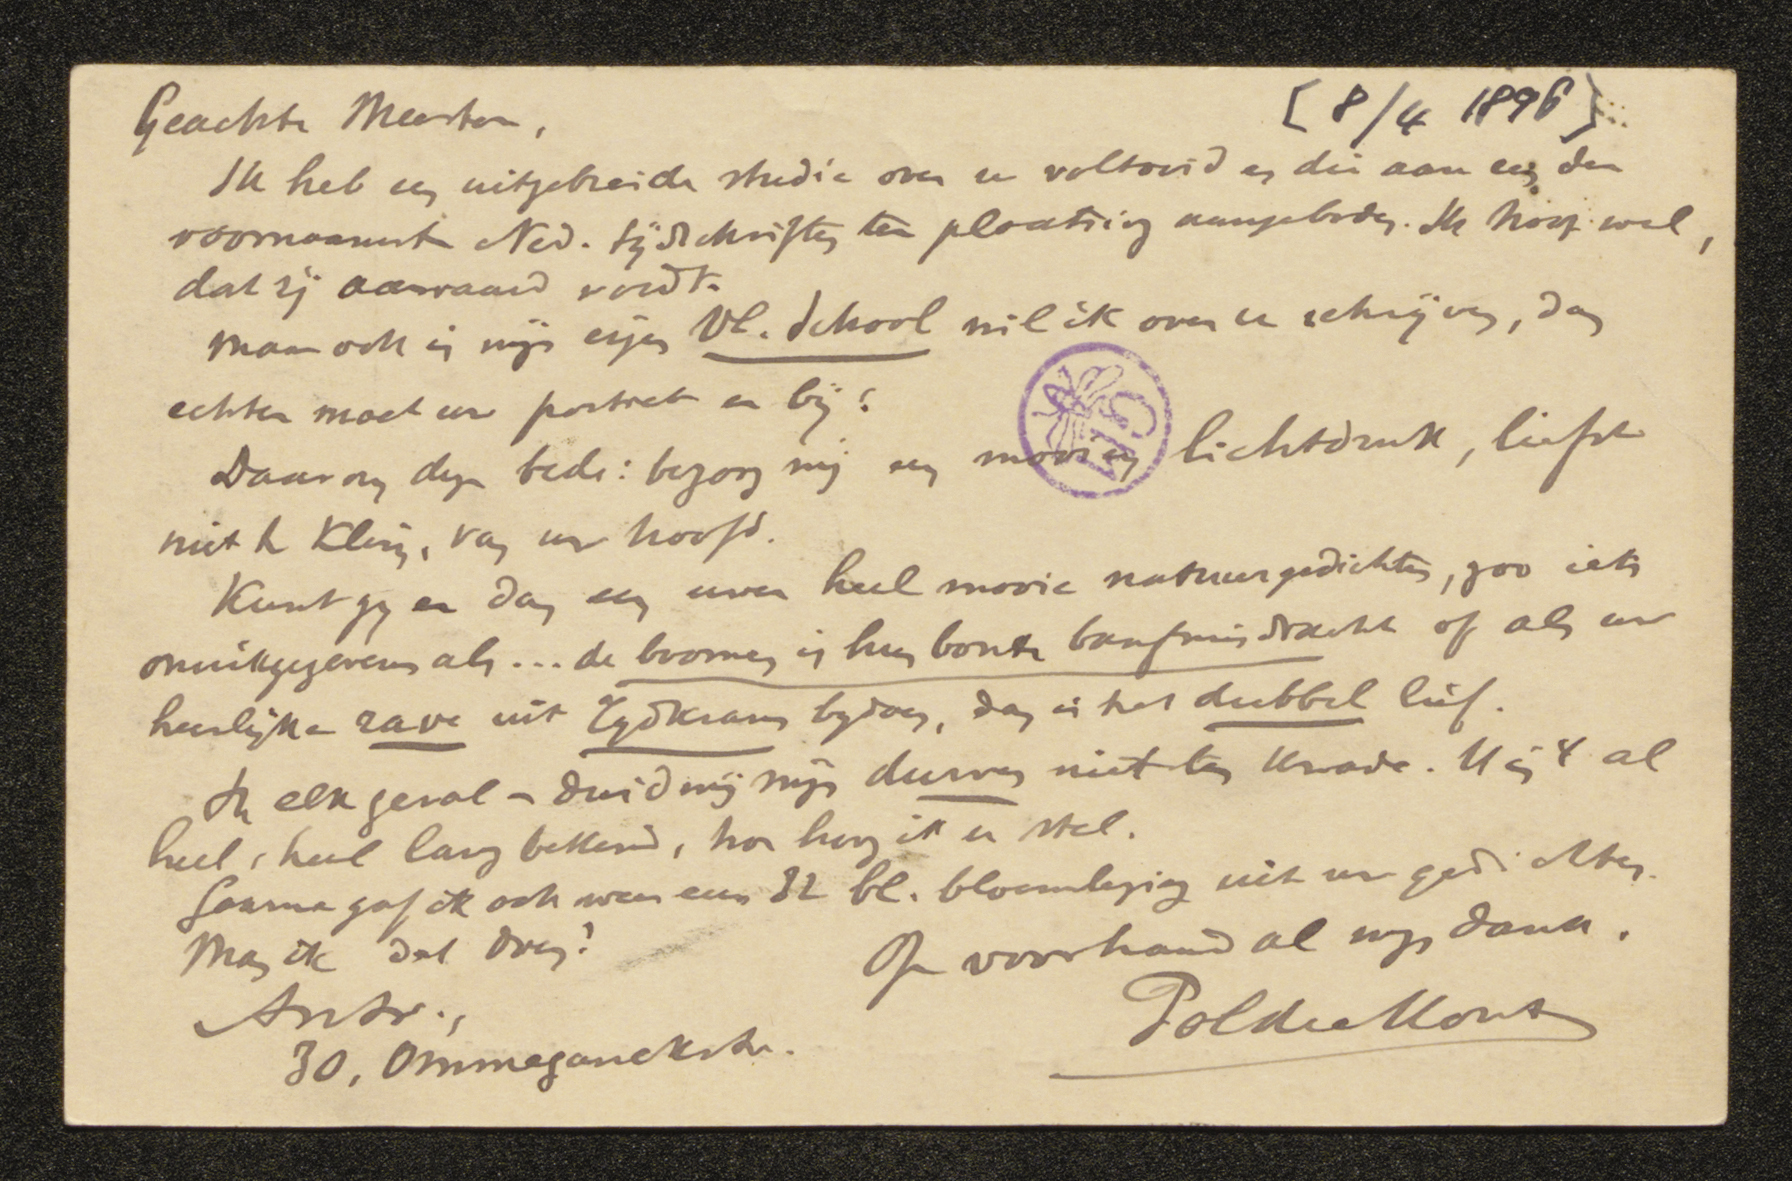 [8/4 1896]
Geachte Meester,
Ik heb een uitgebreide studie over u voltooid en die aan een der
voornaamste Ned. tijdschriften ter plaatsing aangeboden. Ik hoop wel,
dat zij aanvaard wordt.
Maar ook in mijn eigen Vl. School wil ik over u schrijven, dan
echter moet uw portret er bij!
Daarom deze bede: bezorg mij een mooien lichtdruk, liefst
niet te klein, van uw hoofd.
Kunt gy er dan een uwer heel mooie natuurgedichten, zoo iets
onuitgegevens als ... de boomen in hun bonte bangmisdracht of als uw
heerlijke rave uit Tydkrans bydoen, dan is het dubbel lief.
In elk geval – duid mij mijn durven niet ten kwade. U is 't al
heel, heel lang bekend, hoe hoog ik u stel.
Gaarne gaf ik ook weer eens 32 bl. bloemlezing uit uw gedichten.
Mag ik dat doen?
Op voorhand al myn dank.
Antw.,
Pol de Mont
30, Ommeganckstr.